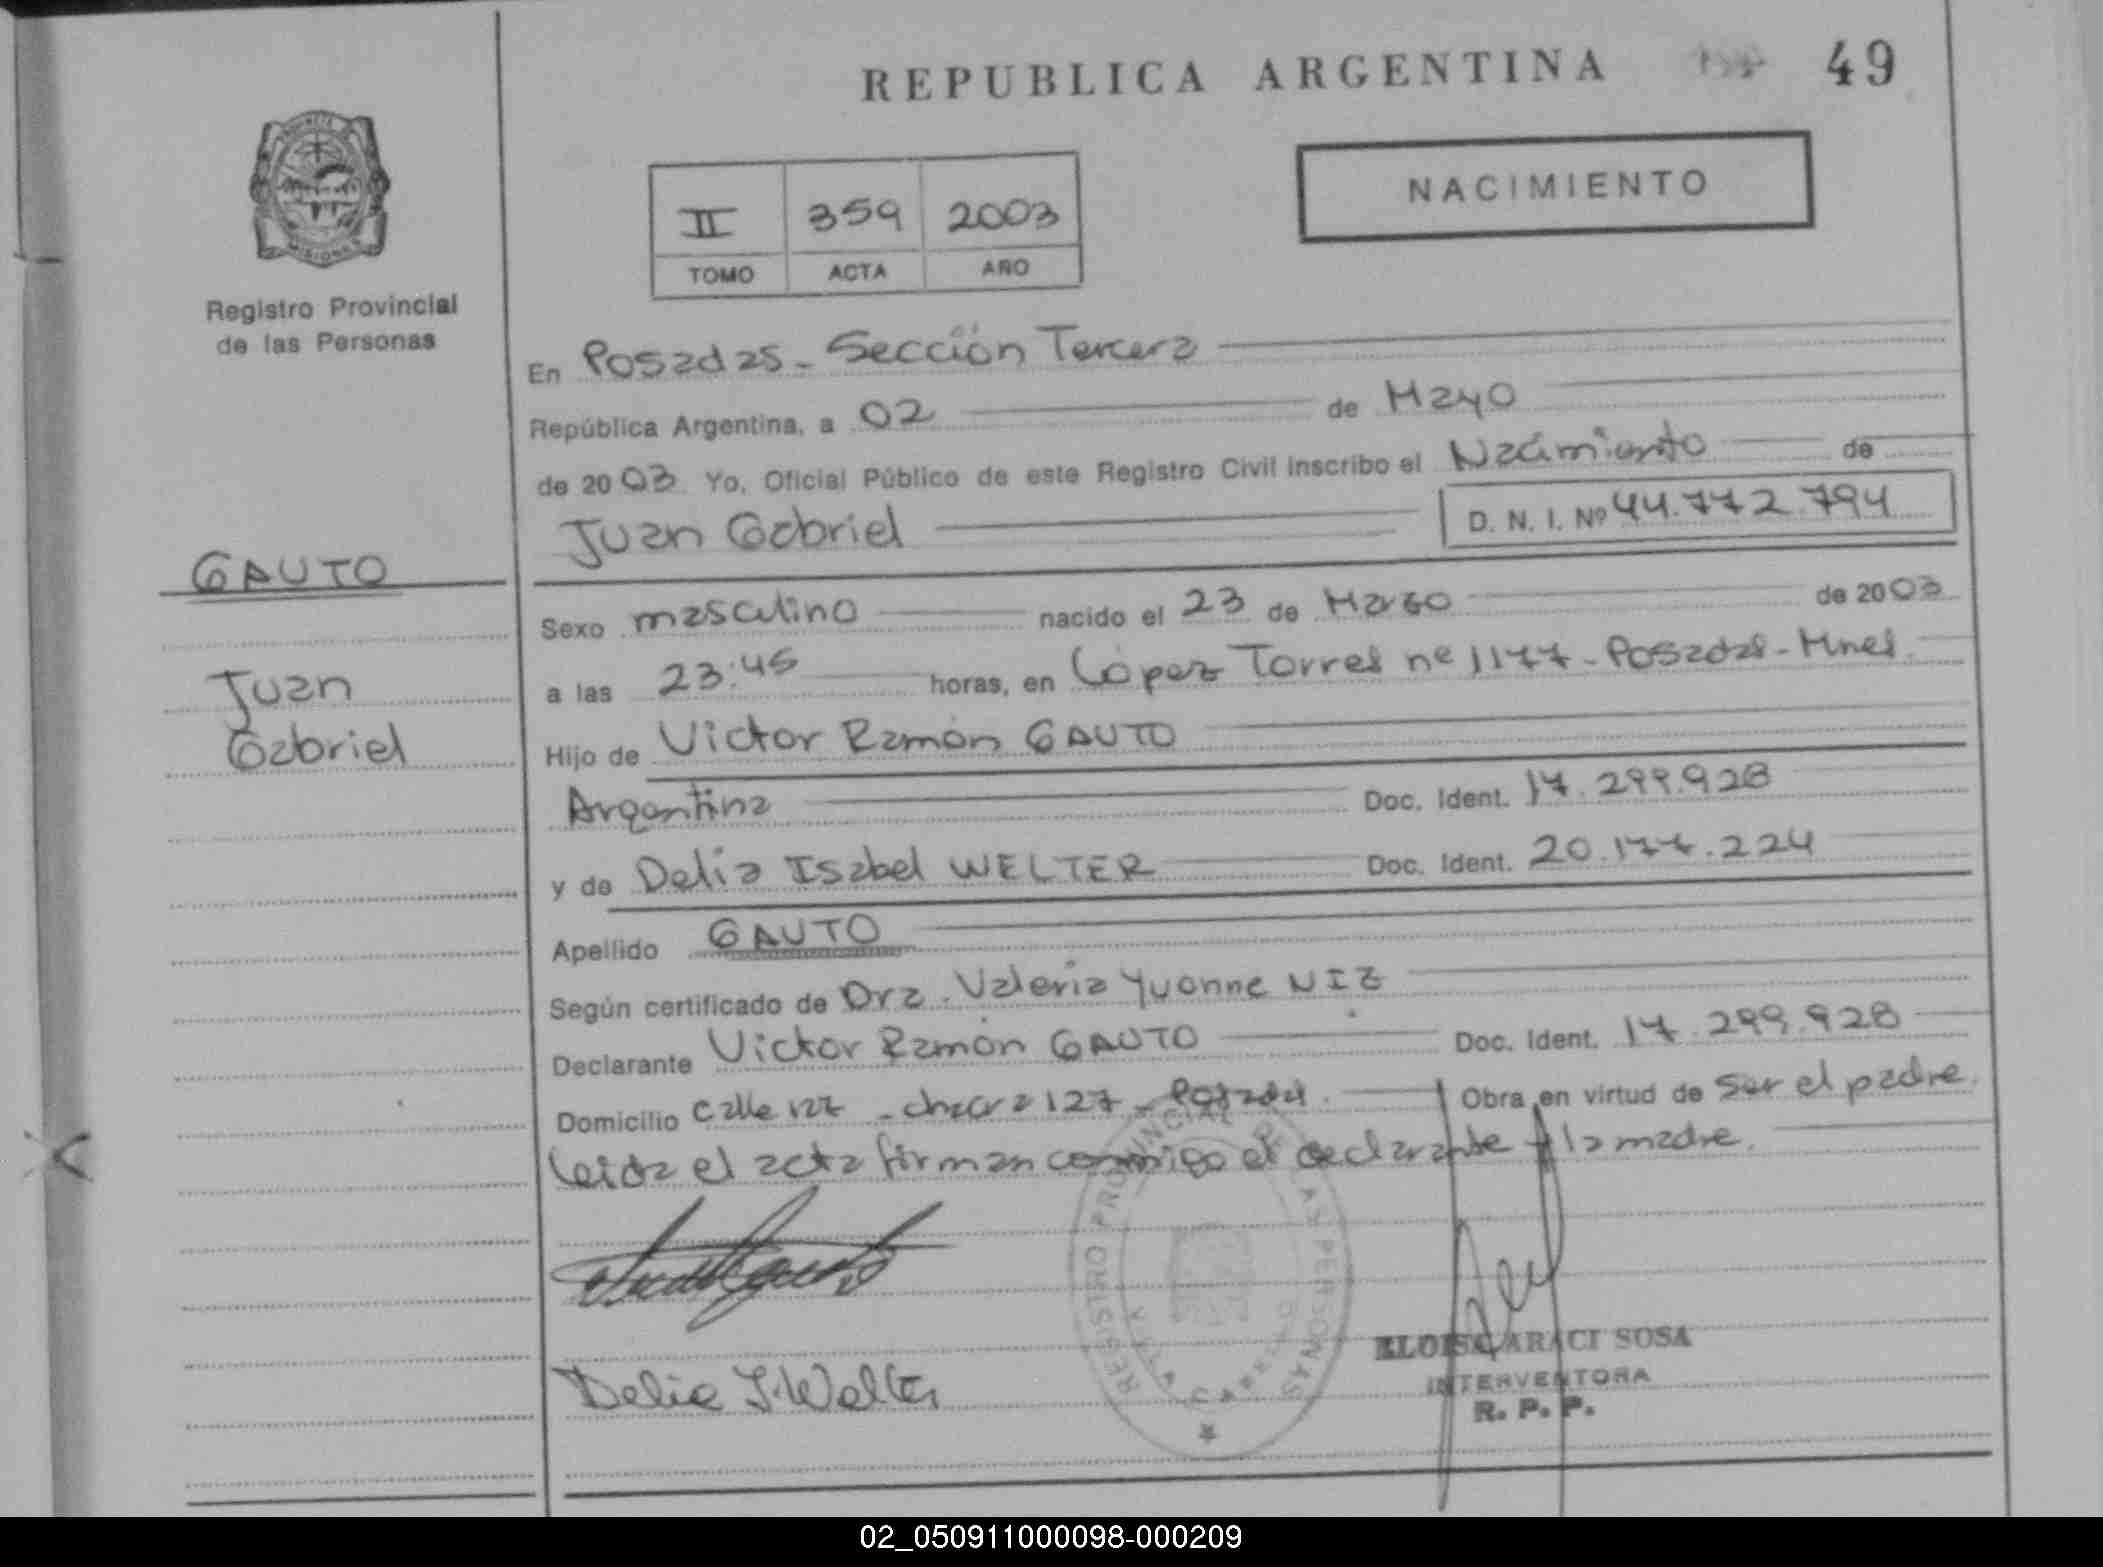 REPUBLICA ARGENTINA 49
NACIMIENTO
II 359 2003
TOMO ACTA AÑO
Registro Provincial
de las Personas
En Posadas - Sección Tercera
República Argentina, a 02 de Mayo
de 2003 Yo, Oficial Público de este Registro Civil inscribo el Nacimiento de
Juan Gabriel D. N. I. Nº 44.772.794
GAUTO
Juan
Gabriel
Sexo masculino nacido el 23 de Marzo de 2003
a las 23:45 horas, en López Torres nº 1177 - Posadas - Mnes.
Hijo de Victor Ramón GAUTO
Argentina Doc. Ident. 17.299.928
y de Delia Isabel WELTER Doc. Ident. 20.177.224
Apellido GAUTO
Según certificado de Dra. Valeria Yvonne NIZ
Declarante Victor Ramón GAUTO Doc. Ident. 17.299.928
Domicilio calle 127 - chacra 127 - Posadas. Obra en virtud de ser el padre.
Leida el acta firman conmigo el declarante y la madre.
REGISTRO PROVINCIAL DE LAS PERSONAS
Delia I. Welter
ARACI SOSA
INTERVENTORA
R. P. P.
02_050911000098-000209